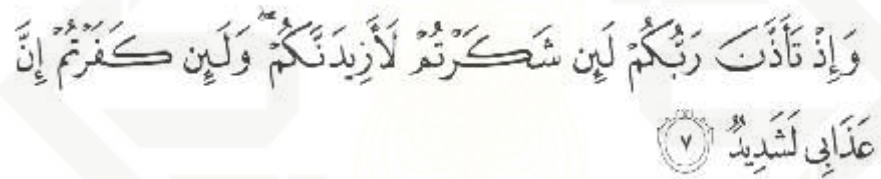 وَإِذْ تَأَذَّنَ رَبُّكُمْ لَئِن شَكَرْتُمْ لَأَزِيدَنَّكُمْ ۖ وَلَئِن كَفَرْتُمْ إِنَّ
عَذَابِى لَشَدِيدٌ ٧